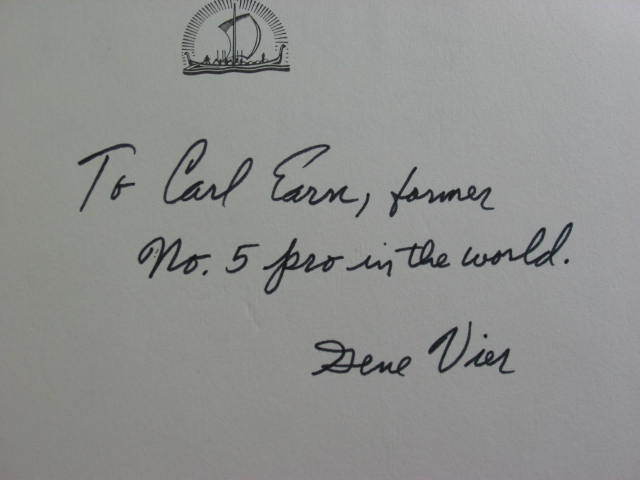 To Carl Earn, former
No. 5 pro in the world.
Gene Vier